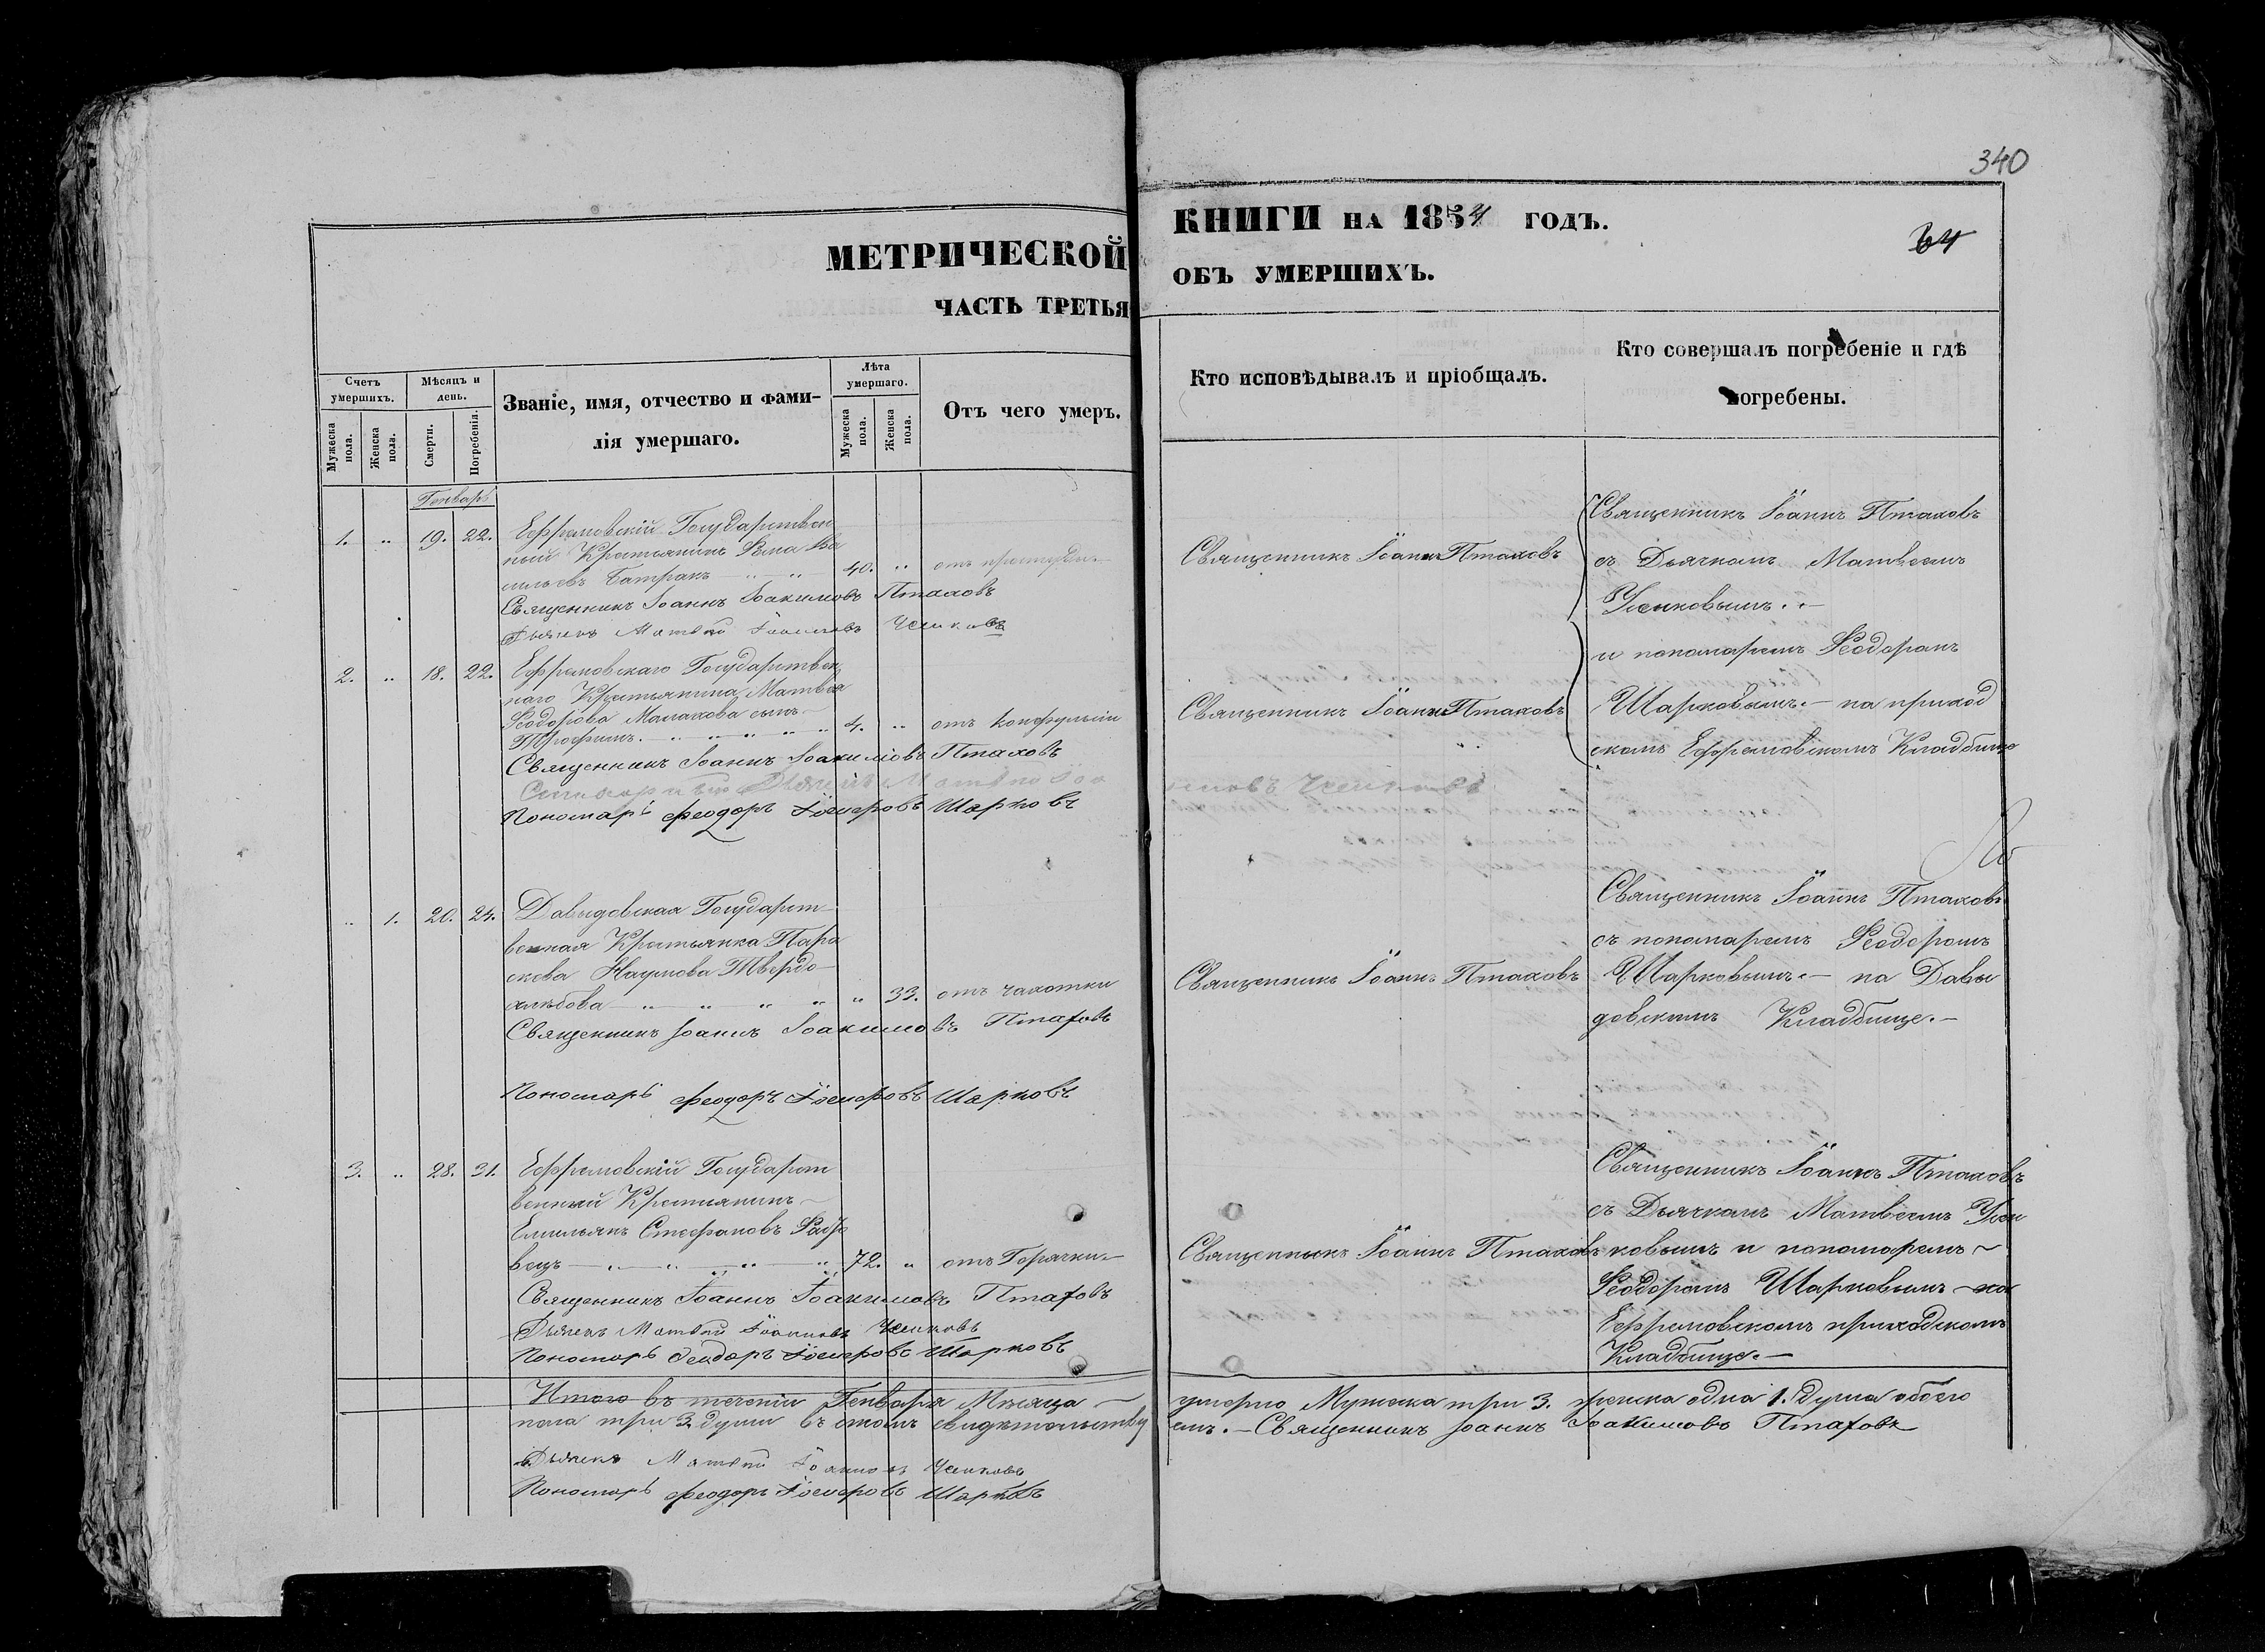 340
64
МЕТРИЧЕСКОЙ КНИГИ НА 1854 ГОДЪ.
ЧАСТЬ ТРЕТЬЯ ОБЪ УМЕРШИХЪ.
Счетъ умершихъ.
Мужеска пола.
Женска пола.
Мѣсяцъ и день.
Смерти.
Погребенія.
Званіе, имя, отчество и фами-
лія умершаго.
Лѣта умершаго.
Мужеска пола.
Женска пола.
Отъ чего умеръ.
Кто исповѣдывалъ и пріобщалъ.
Кто совершалъ погребеніе и гдѣ
погребены.
Генварь
1. „ 19. 22. Ефремовскій Государствен
ный Крестьянинъ Ѳома Ва
сильевъ Батракъ 40. „ отъ
Священникъ Іоаннъ Іоакимовъ Птаховъ
Дьячекъ Матвѣй
Священникъ Іоаннъ Птаховъ
Священникъ Іоаннъ Птаховъ
съ Дьячкомъ Матвеемъ
и пономаремъ Ѳеодоромъ
Шарковымъ. — на приход
скомъ Ефремовскомъ Кладбище
2. „ 18. 22. Ефремовскаго Государствен
наго Крестьянина Матвея
Ѳеодорова Малахова сынъ
Трофимъ. 4. „ отъ конфульсіи
Священникъ Іоаннъ Іоакимовъ Птаховъ
Пономарь Феодоръ Шарковъ
Священникъ Іоаннъ Птаховъ
„ 1. 20. 24. Давыдовская Государст
венная Крестьянка Пара
скева Наумова Твердо
хлѣбова „ 33. отъ чахотки
Священникъ Іоаннъ Іоакимовъ Птаховъ
Пономарь Феодоръ Шарковъ
Священникъ Іоаннъ Птаховъ
Священникъ Іоаннъ Птаховъ
съ пономаремъ Ѳеодоромъ
Шарковымъ. — на Давы
довскомъ Кладбище. —
3. „ 28. 31. Ефремовскій Государст
венный Крестьянинъ
Емильянъ Стефановъ
вецъ 72. „ отъ Горячки
Священникъ Іоаннъ Іоакимовъ Птаховъ
Дьячекъ Матвѣй
Пономарь Феодоръ Шарковъ
Священникъ Іоаннъ Птаховъ
Священникъ Іоаннъ Птаховъ
съ Дьячкомъ Матвеемъ
ковымъ и пономаремъ
Ѳеодоромъ Шарковымъ — на
Ефремовскомъ приходскомъ
Кладбище. —
Итого въ теченіи Генваря Мѣсяца умерло Мужеска три 3. женска одна 1. Душа обоего
пола три 3 души въ томъ свидѣтельству
емъ. — Священникъ Іоаннъ Іоакимовъ Птаховъ
Дьячекъ Матвѣй
Пономарь Феодоръ Шарковъ